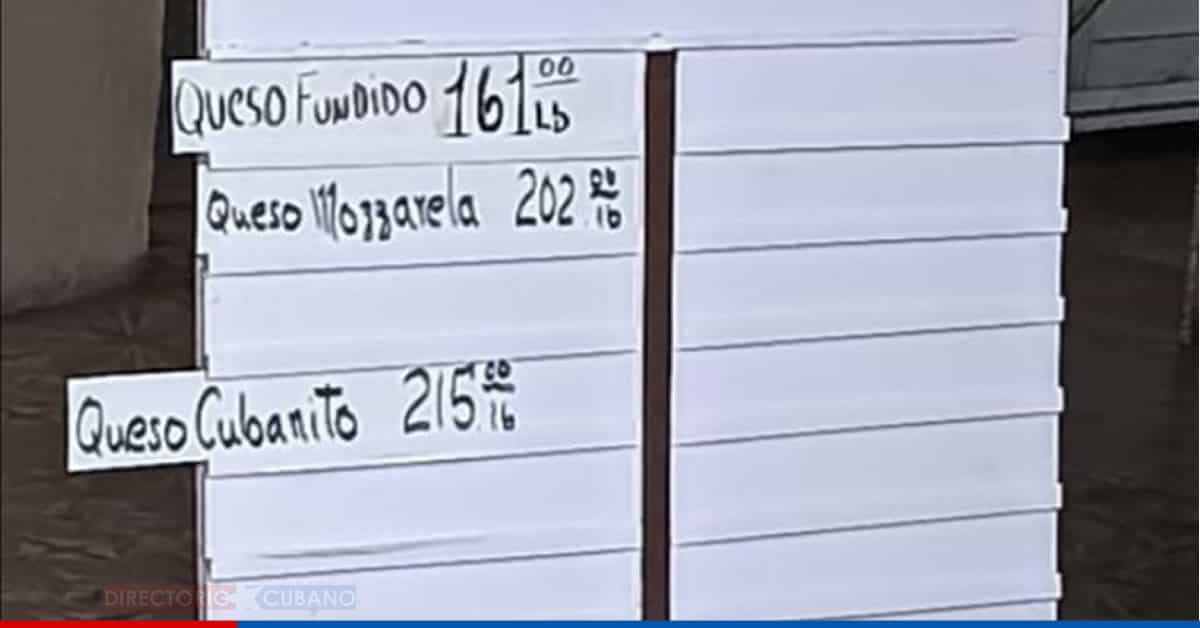 Queso Fundido 161 00 Lb
Queso Mozzarela 202 00 lb
Queso Cubanito 215 00 lb
DIRECTORIO CUBANO